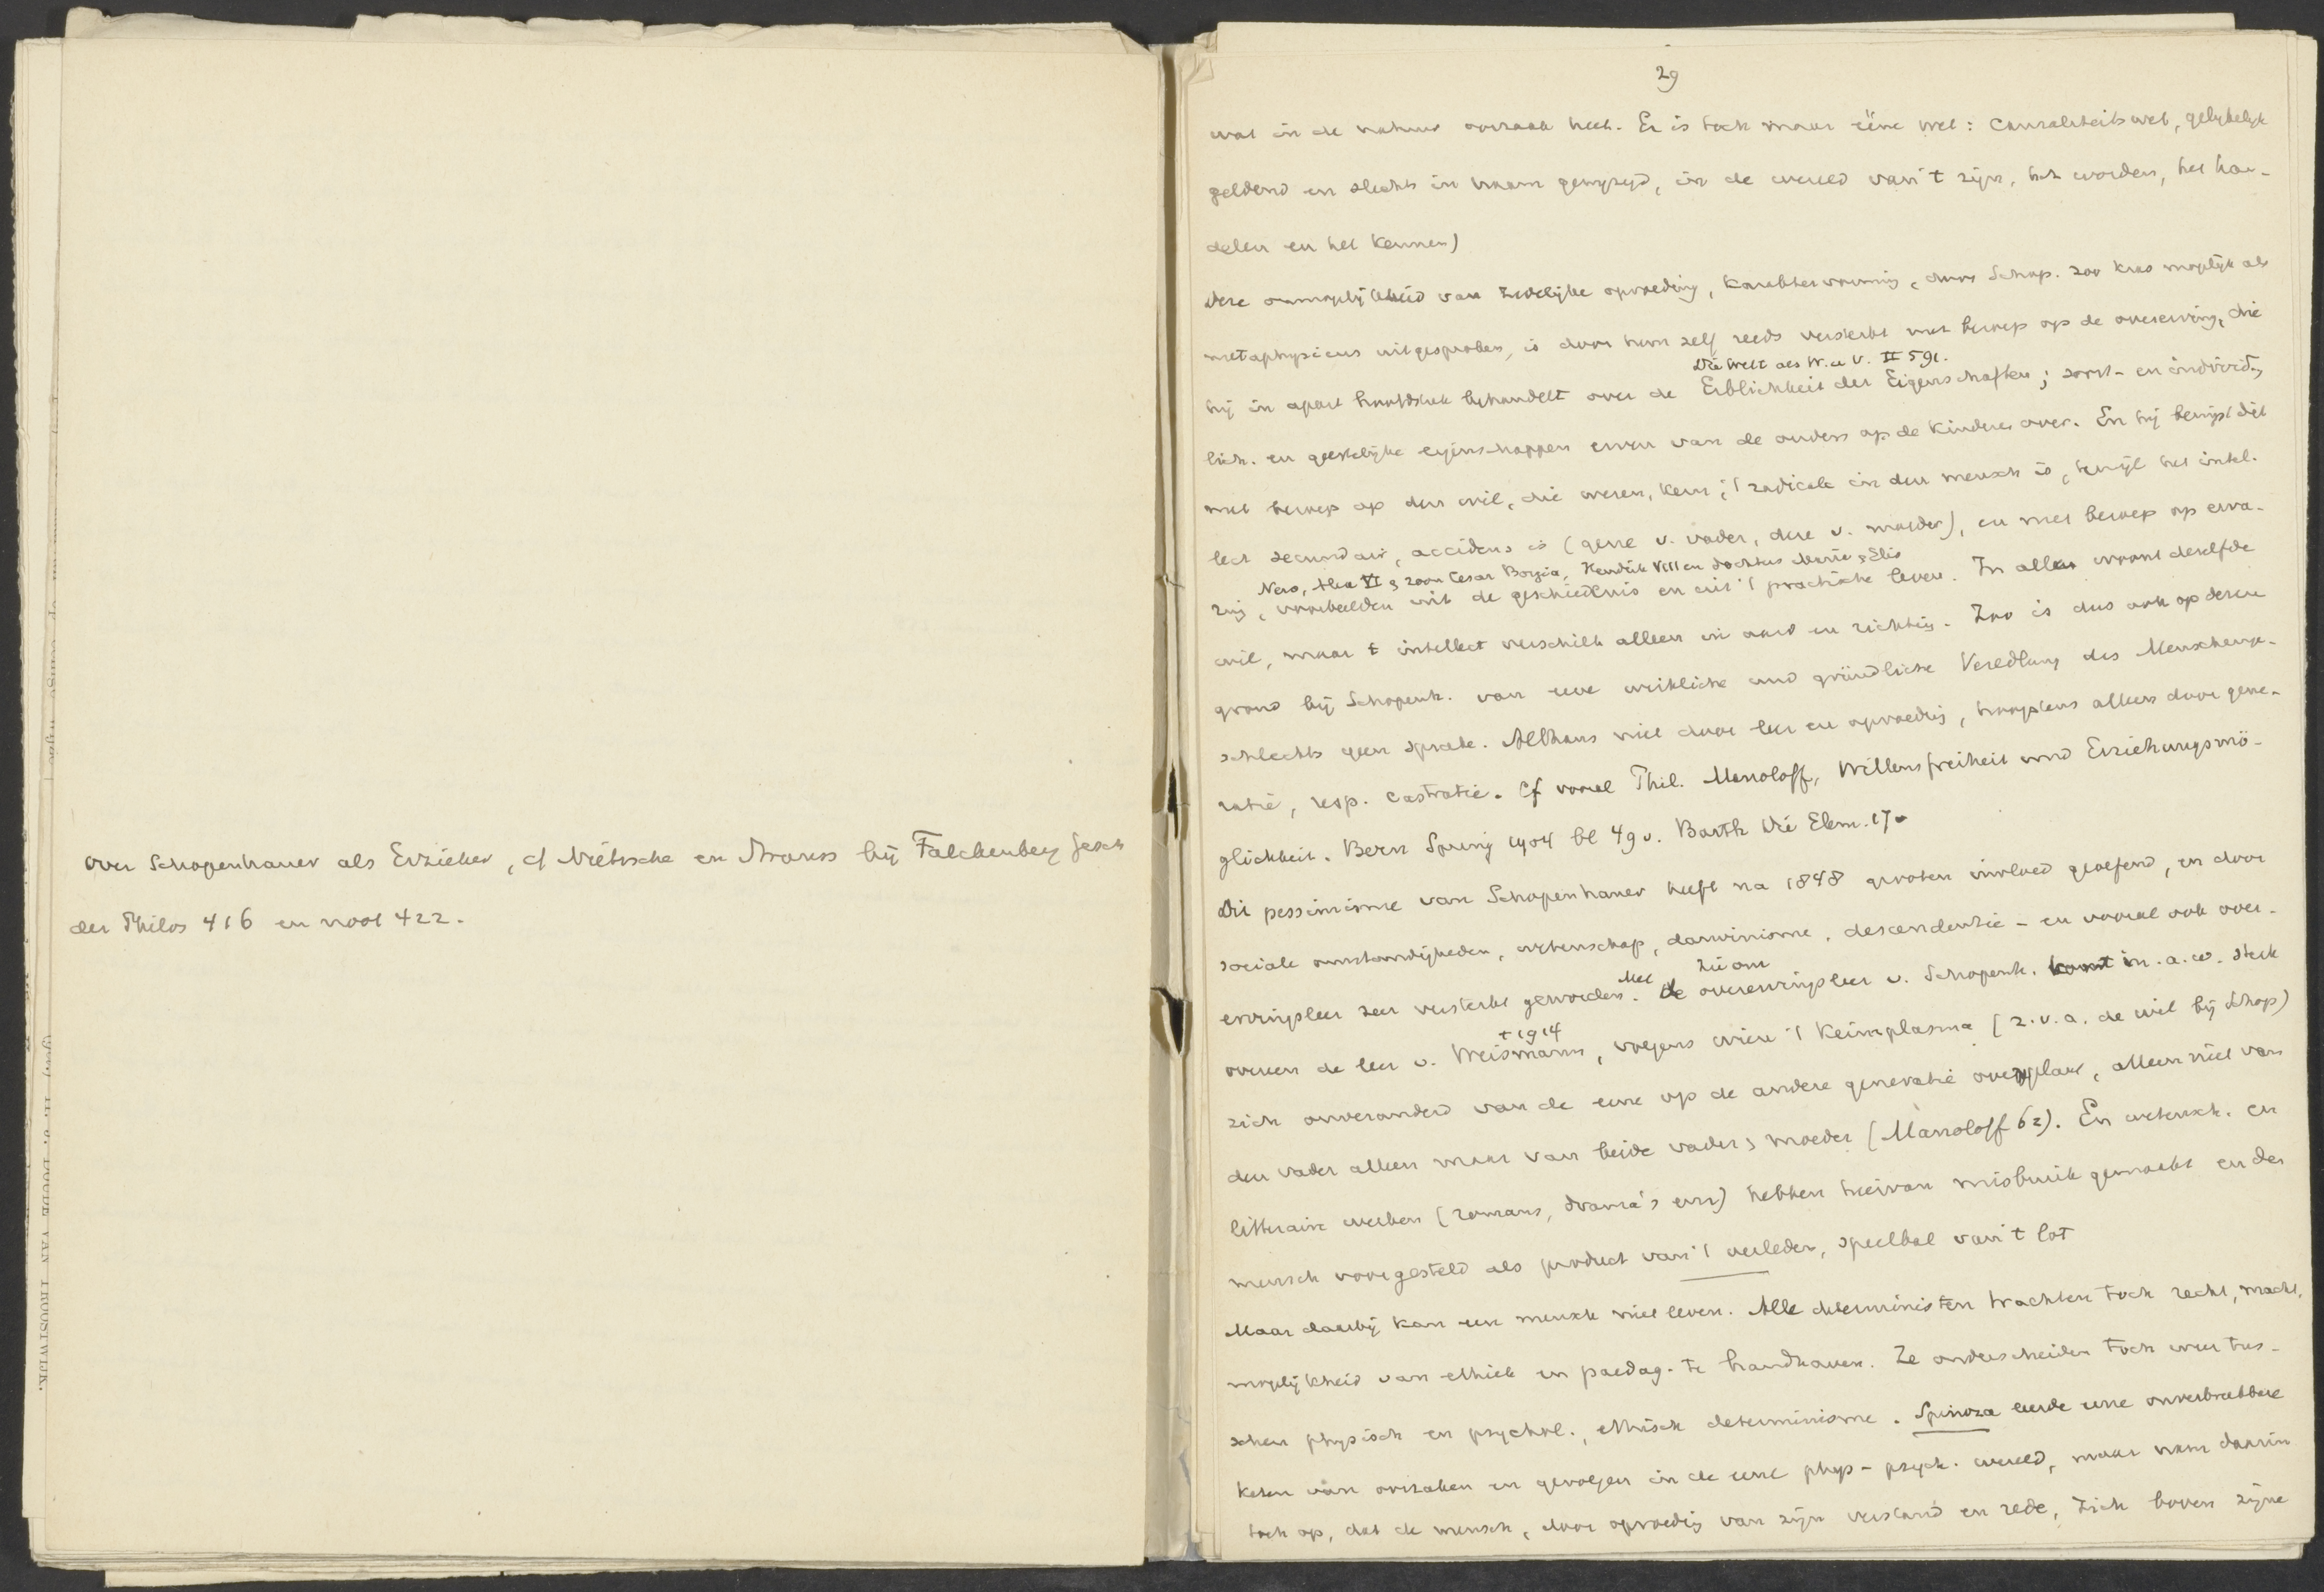 over Schopenhauer als Erzieher, cf Niétzsche en Strauss bij Falckenberg Gesch
der Philos 416 en noot 422.
29
wat in de natuur oorzaak heet. Er is toch maar ééne wet: Causaliteitswet, gelijkelijk
geldend en slechts in naam gewijzigd, in de wereld van 't zijn, het worden, het han-
delen en het kennen)
Deze onmogelijkheid van zedelijke opvoeding, karaktervorming, door Schop. zoo kras mogelijk als
metaphysicus uitgesproken, is door hem zelf reeds versterkt met beroep op de overerving, die
Die Welt als W. u V. II 591.
hij in apart hoofdstuk behandelt over de Erblichkeit der Eigenschaften; soort- en individ.,
lich. en geestelijke eigenschappen erven van de ouders op de kinderen over. En hij bewijst dit
met beroep op den wil, die wezen, kern, 't radicale in den mensch is, terwijl het intel-
lect secundair, accidens is (gene v. vader, deze v. moeder), en met beroep op erva-
Nero, Alex VI & zoon Cesar Borgia, Hendrik VIII en dochters Marie & Elis
ring, voorbeelden uit de geschiedenis en uit 't practische leven. In allen woont dezelfde
wil, maar 't intellect verschilt alleen in aard en richting. Zoo is dus ook op dezen
grond bij Schopenh. van eene wirkliche und gründliche Veredlung des Menschenge-
schlechts geen sprake. Althans niet door leer en opvoeding, hoogstens alleen door gene-
ratie, resp. castratie. Cf vooral Phil. Manoloff, Willensfreiheit und Erziehungsmö-
glichkeit. Bern 1904 bl 49 v. Barth Die Elem. 17
Dit pessimisme van Schopenhauer heeft na 1848 grooten invloed geoefend, en door
sociale omstandigheden, wetenschap, darwinisme, descendentie - en vooral ook over-
Met
ervingsleer zeer versterkt geworden. de overervingsleer v. Schopenh. komt m.a.w. sterk
†1914
overeen de leer v. Weismann, volgens wien 't Keimplasma (z.v.a. de wil bij Schop)
zich onveranderd van de eene op de andere generatie overplant, alleen niet van
den vader alleen maar van beide vader & moeder (Manoloff 62). En wetensch. en
litteraire werken (romans, drama's enz) hebben hiervan misbruik gemaakt en den
mensch voorgesteld als product van 't verleden, speelbal van 't lot
Maar daarbij kan een mensch niet leven. Alle deterministen trachten toch recht, macht,
mogelijkheid van ethiek en paedag. te handhaven. Ze onderscheiden toch weer tus-
schen physisch en psychol., ethisch determinisme. Spinoza leerde eene onverbreekbare
keten van oorzaken en gevolgen in de eene phys- psych. wereld, maar nam daarin
toch op, dat de mensch, door opvoeding van zijn verstand en rede, zich boven zijne